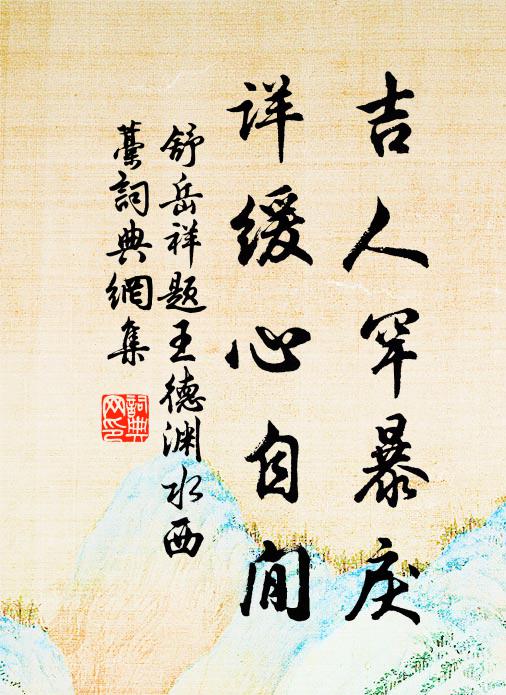 吉人罕暴戾
详缓心自闲
舒岳祥题王德渊水西
藁詞典網集
詞典网印